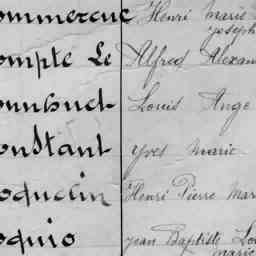 ommereuc Henri Marie
Joseph
ompte Le Alfred Alexan
onnuel Louis Ange
onstant Yves Marie
oquelin Henri Pierre Mar
oquio Jean Baptiste Lou
Marie